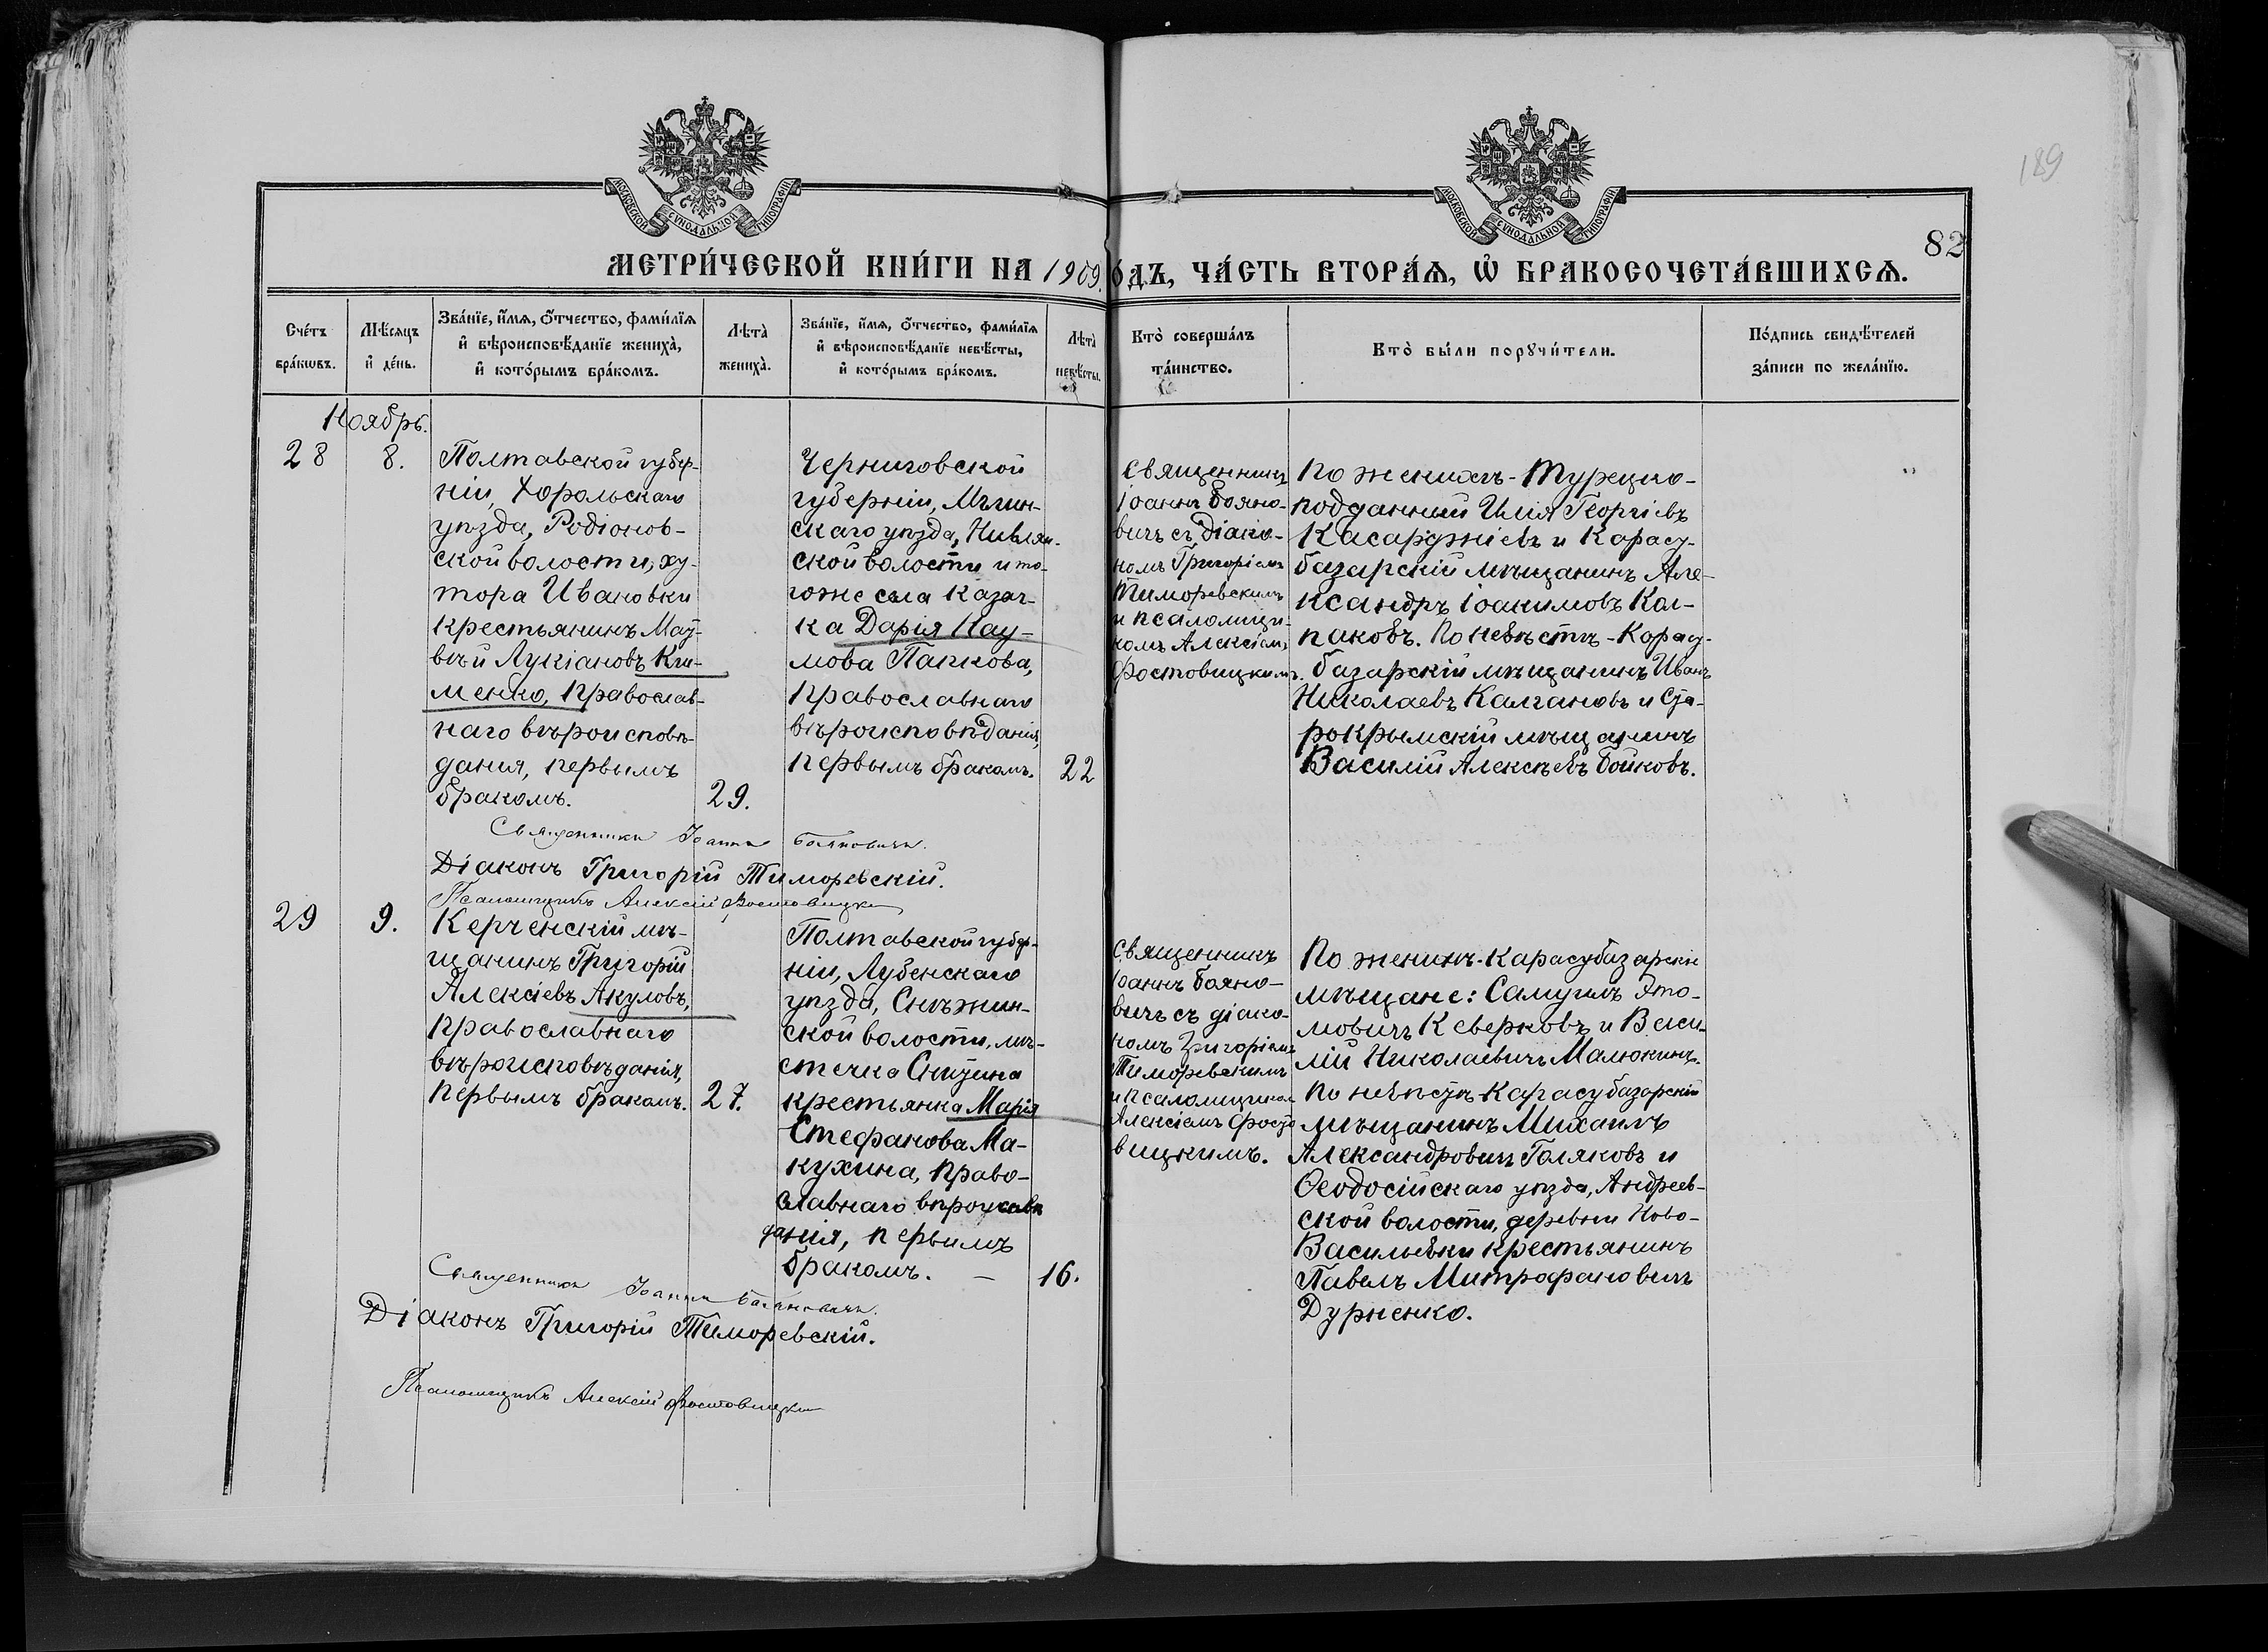 189
82
МОСКОВСКОЙ СѴНОДАЛЬНОЙ ТИПОГРАФІИ
МОСКОВСКОЙ СѴНОДАЛЬНОЙ ТИПОГРАФІИ
МЕТРИ́ЧЕСКОЙ КНИ́ГИ НА 1909 ГО́ДЪ, ЧА́СТЬ ВТОРА́Ѧ, Ѡ҆ БРАКОСОЧЕТА́ВШИХСѦ.
Сче́тъ
бра́кѡвъ.
Мѣ́сяцъ
и҆ де́нь.
Зва́нїе, и҆́мѧ, ѻ҆́тчество, фами́лїѧ
и҆ вѣроисповѣ́данїе жениха̀,
и҆ кото́рымъ бра́комъ.
Лѣта̀
жениха̀.
Зва́нїе, и҆́мѧ, ѻ҆́тчество, фами́лїѧ
и҆ вѣроисповѣ́данїе невѣ́сты,
и҆ кото́рымъ бра́комъ.
Лѣта̀
невѣ́сты.
Кто̀ соверша́лъ
та́инство.
Кто̀ бы́ли порꙋчи́тели.
По́дпись свидѣ́телей
за́писи по жела́нїю.
Ноябрь.
28
8.
Полтавской губер-
ніи, Хорольскаго
уѣзда, Родіонов-
ской волости, ху-
тора Ивановки
крестьянинъ Мат-
вѣй Лукіановъ Кли-
менко, православ-
наго вѣроисповѣ-
данія, первымъ
бракомъ.
29.
Черниговской
губерніи, Мглин-
скаго уѣзда, Нивлян-
ской волости и то-
гоже села казач-
ка Дарія Нау-
мова Папкова,
православнаго
вѣроисповѣданія,
первымъ бракомъ.
22
Священникъ
Іоаннъ Бояно-
вичъ съ діако-
номъ Григоріемъ
Тиморевскимъ
и псаломщи-
комъ Алексіемъ
Фростовицкимъ.
По женихѣ - Турецко-
подданный Илія Георгіевъ
Касарджіевъ и Карасу-
базарскій мѣщанинъ Але-
ксандръ Іоакимовъ Кол-
паковъ. По невѣстѣ - Карасу-
базарскій мѣщанинъ Иванъ
Николаевъ Калгановъ и Ста-
рокрымскій мѣщанинъ
Василій Алексѣевъ Бойковъ.
Священникъ Іоаннъ Бояновичъ.
Діаконъ Григорій Тиморевскій.
Псаломщикъ Алексій Фростовицкій
29
9.
Керченскій мѣ-
щанинъ Григорій
Алексіевъ Акуловъ,
православнаго
вѣроисповѣданія,
первымъ бракомъ.
27.
Полтавской губер-
ніи, Лубенскаго
уѣзда, Снѣжин-
ской волости, мѣ-
стечка Снѣтина
крестьянка Марія
Стефанова Ма-
кухина, право-
славнаго вѣроисповѣ
данія, первымъ
бракомъ. —
16.
Священникъ
Іоаннъ Бояно-
вичъ съ діако-
номъ Григоріемъ
Тиморевскимъ
и псаломщикомъ
Алексіемъ Фросто
вицкимъ.
По женихѣ - Карасубазарскіе
мѣщане: Самуилъ
мовичъ Кеверковъ и Васи-
лій Николаевичъ Малюкинъ.
По невѣстѣ - Карасубазарскій
мѣщанинъ Михаилъ
Александровичъ Голяковъ и
Ѳеодосійскаго уѣзда, Андреев-
ской волости, деревни Ново-
Васильевки крестьянинъ
Павелъ Митрофановичъ
Дурненко.
Священникъ Іоаннъ Бояновичъ.
Діаконъ Григорій Тиморевскій.
Псаломщикъ Алексій Фростовицкій